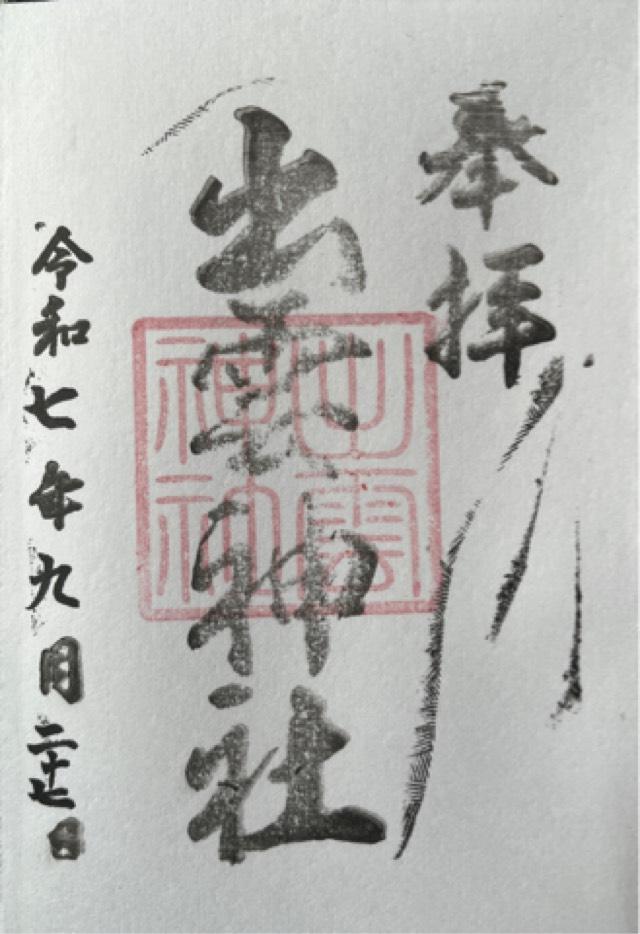 奉拝
出雲神社
出雲神社
令和七年九月二十七日